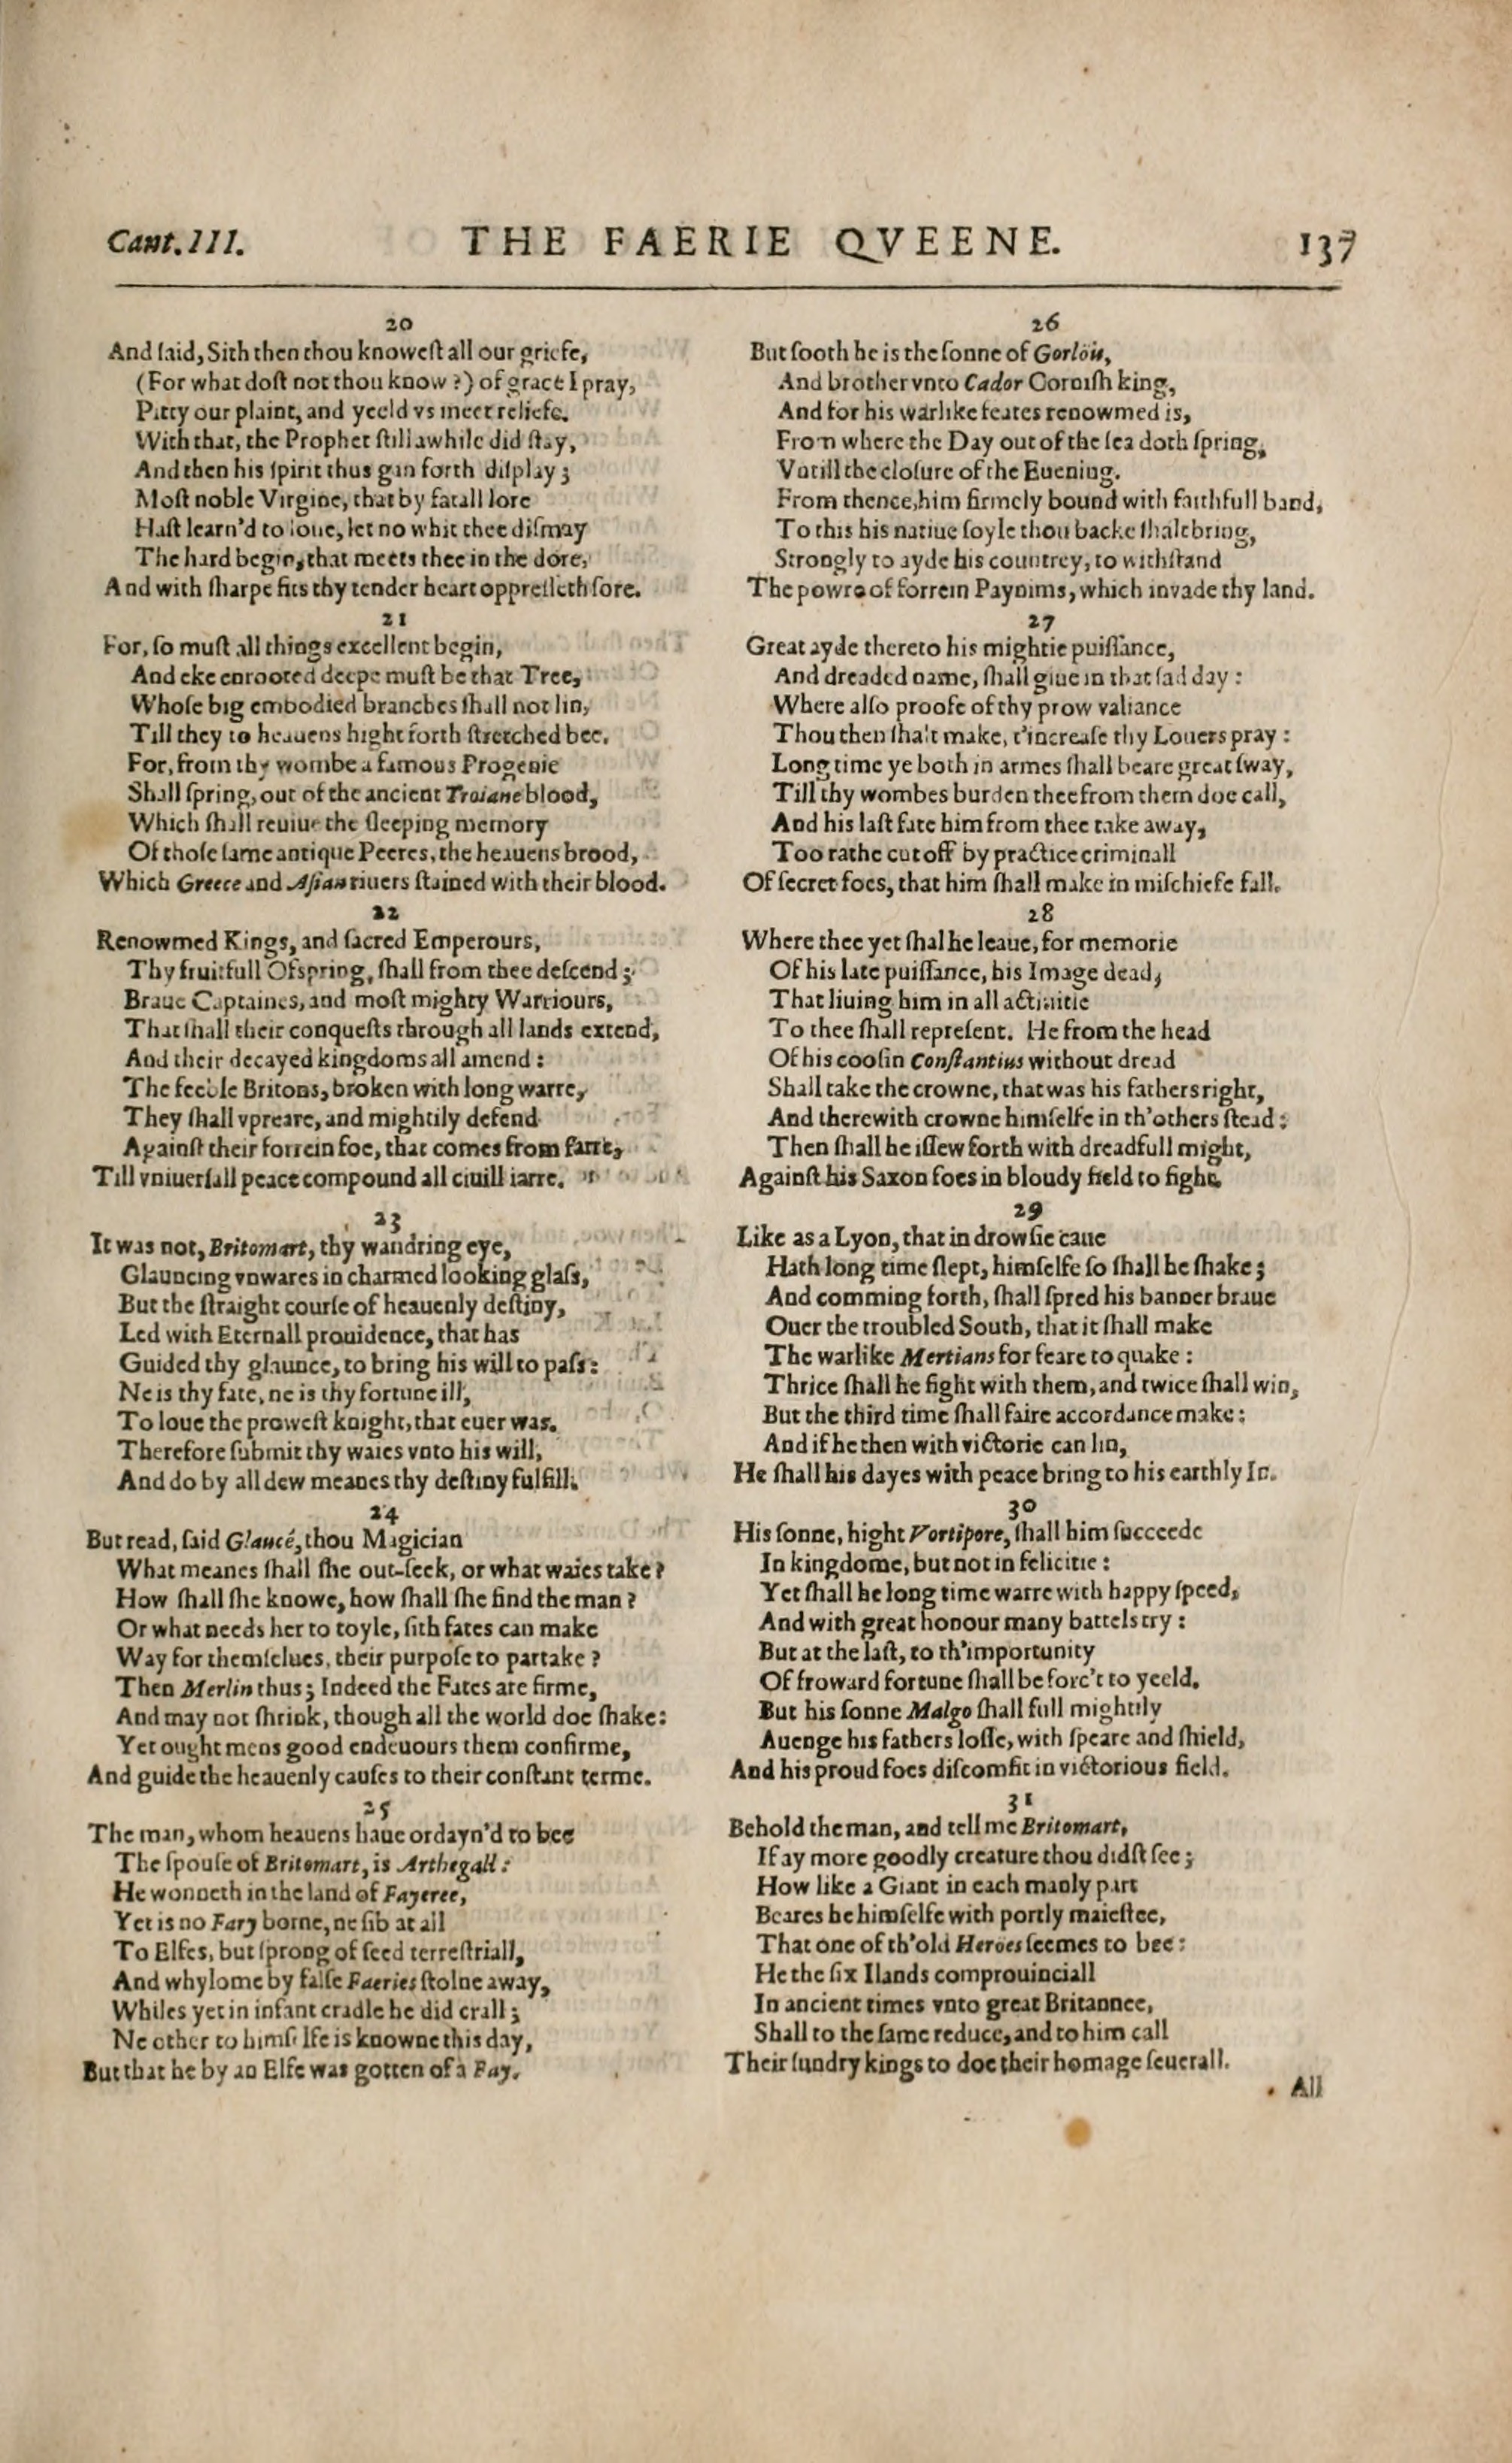 Cant. III. THE FAERIE QVEENE. 137
20
And ſaid, Sith then thou knoweſt all our griefe,
(For what doſt not thou know ?) of grace I pray,
Pitty our plaint, and yeeld vs meet reliefe.
With that, the Prophet ſtill awhile did ſtay,
And then his ſpirit thus gan forth diſplay ;
Moſt noble Virgine, that by fatall lore
Haſt learn'd to loue, let no whit thee diſmay
The hard begin, that meets thee in the dore,
And with ſharpe fits thy tender heart oppreſſeth ſore.
21
For, ſo muſt all things excellent begin,
And eke enrooted deepe muſt be that Tree,
Whoſe big embodied branches ſhall not lin,
Till they to heauens hight forth ſtretched bee.
For, from thy wombe a famous Progenie
Shall ſpring, out of the ancient Troiane blood,
Which ſhall reuiue the ſleeping memory
Of thoſe ſame antique Peeres, the heauens brood,
Which Greece and Aſian riuers ſtained with their blood.
22
Renowmed Kings, and ſacred Emperours,
Thy fruitfull Ofspring, ſhall from thee deſcend ;
Braue Captaines, and moſt mighty Warriours,
That ſhall their conqueſts through all lands extend,
And their decayed kingdoms all amend :
The feeble Britons, broken with long warre,
They ſhall vpreare, and mightily defend
Againſt their forrein foe, that comes from farre,
Till vniuerſall peace compound all ciuill iarre.
23
It was not, Britomart, thy wandring eye,
Glauncing vnwares in charmed looking glaſs,
But the ſtraight courſe of heauenly deſtiny,
Led with Eternall prouidence, that has
Guided thy glaunce, to bring his will to paſs :
Ne is thy fate, ne is thy fortune ill,
To loue the proweſt knight, that euer was.
Therefore ſubmit thy waies vnto his will,
And do by all dew meanes thy deſtiny fulfill.
24
But read, ſaid Glaucé, thou Magician
What meanes ſhall ſhe out-ſeek, or what waies take ?
How ſhall ſhe knowe, how ſhall ſhe find the man ?
Or what needs her to toyle, ſith fates can make
Way for themſelues, their purpoſe to partake ?
Then Merlin thus ; Indeed the Fates are firme,
And may not ſhrink, though all the world doe ſhake :
Yet ought mens good endeuours them confirme,
And guide the heauenly cauſes to their conſtant terme.
25
The man, whom heauens haue ordayn'd to bee
The ſpouſe of Britomart, is Arthegall :
He wonneth in the land of Fayeree,
Yet is no Fary borne, ne ſib at all
To Elfes, but ſprong of ſeed terreſtriall,
And whylome by falſe Faeries ſtolne away,
Whiles yet in infant cradle he did crall ;
Ne other to himſelfe is knowne this day,
But that he by an Elfe was gotten of a Fay.
26
But ſooth he is the ſonne of Gorloïs,
And brother vnto Cador Corniſh king,
And for his warlike feates renowmed is,
From where the Day out of the ſea doth ſpring,
Vntill the cloſure of the Euening.
From thence, him firmely bound with faithfull band,
To this his natiue ſoyle thou backe ſhalt bring,
Strongly to ayde his countrey, to withſtand
The powre of forrein Paynims, which invade thy land.
27
Great ayde thereto his mightie puiſſance,
And dreaded name, ſhall giue in that ſad day :
Where alſo proofe of thy prow valiance
Thou then ſhalt make, t'increaſe thy Louers pray :
Long time ye both in armes ſhall beare great ſway,
Till thy wombes burden thee from them doe call,
And his laſt fate him from thee take away,
Too rathe cut off by practice criminall
Of ſecret foes, that him ſhall make in miſchiefe fall.
28
Where thee yet ſhal he leaue, for memorie
Of his late puiſſance, his Image dead,
That liuing him in all actiuitie
To thee ſhall repreſent. He from the head
Of his cooſin Conſtantius without dread
Shall take the crowne, that was his fathers right,
And therewith crowne himſelfe in th'others ſtead :
Then ſhall he iſſew forth with dreadfull might,
Againſt his Saxon foes in bloudy field to fight.
29
Like as a Lyon, that in drowſie caue
Hath long time ſlept, himſelfe ſo ſhall he ſhake ;
And comming forth, ſhall ſpred his banner braue
Ouer the troubled South, that it ſhall make
The warlike Mertians for feare to quake :
Thrice ſhall he fight with them, and twice ſhall win,
But the third time ſhall faire accordance make :
And if he then with victorie can lin,
He ſhall his dayes with peace bring to his earthly In.
30
His ſonne, hight Vortipore, ſhall him ſucceede
In kingdome, but not in felicitie :
Yet ſhall he long time warre with happy ſpeed,
And with great honour many battels try :
But at the laſt, to th'importunity
Of froward fortune ſhall be forc't to yeeld.
But his ſonne Malgo ſhall full mightily
Auenge his fathers loſſe, with ſpeare and ſhield,
And his proud foes diſcomfit in victorious field.
31
Behold the man, and tell me Britomart,
If ay more goodly creature thou didſt ſee ;
How like a Giant in each manly part
Beares he himſelfe with portly maieſtee,
That one of th'old Heroes ſeemes to bee :
He the ſix Ilands comprouinciall
In ancient times vnto great Britannee,
Shall to the ſame reduce, and to him call
Their ſundry kings to doe their homage ſeuerall.
All